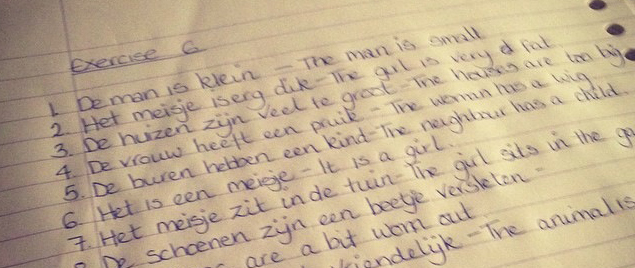 Exercise 6
1. De man is klein - The man is small
2. Het meisje is erg dik - The girl is very fat
3. De huizen zijn veel te groot - The houses are too big
4. De vrouw heeft een pruik - The woman has a wig
5. De buren hebben een kind - The neighbour has a child.
6. Het is een meisje - It is a girl.
7. Het meisje zit in de tuin - The girl sits in the
De schoenen zijn een beetje versleten -
are a bit worn out
- The animal is